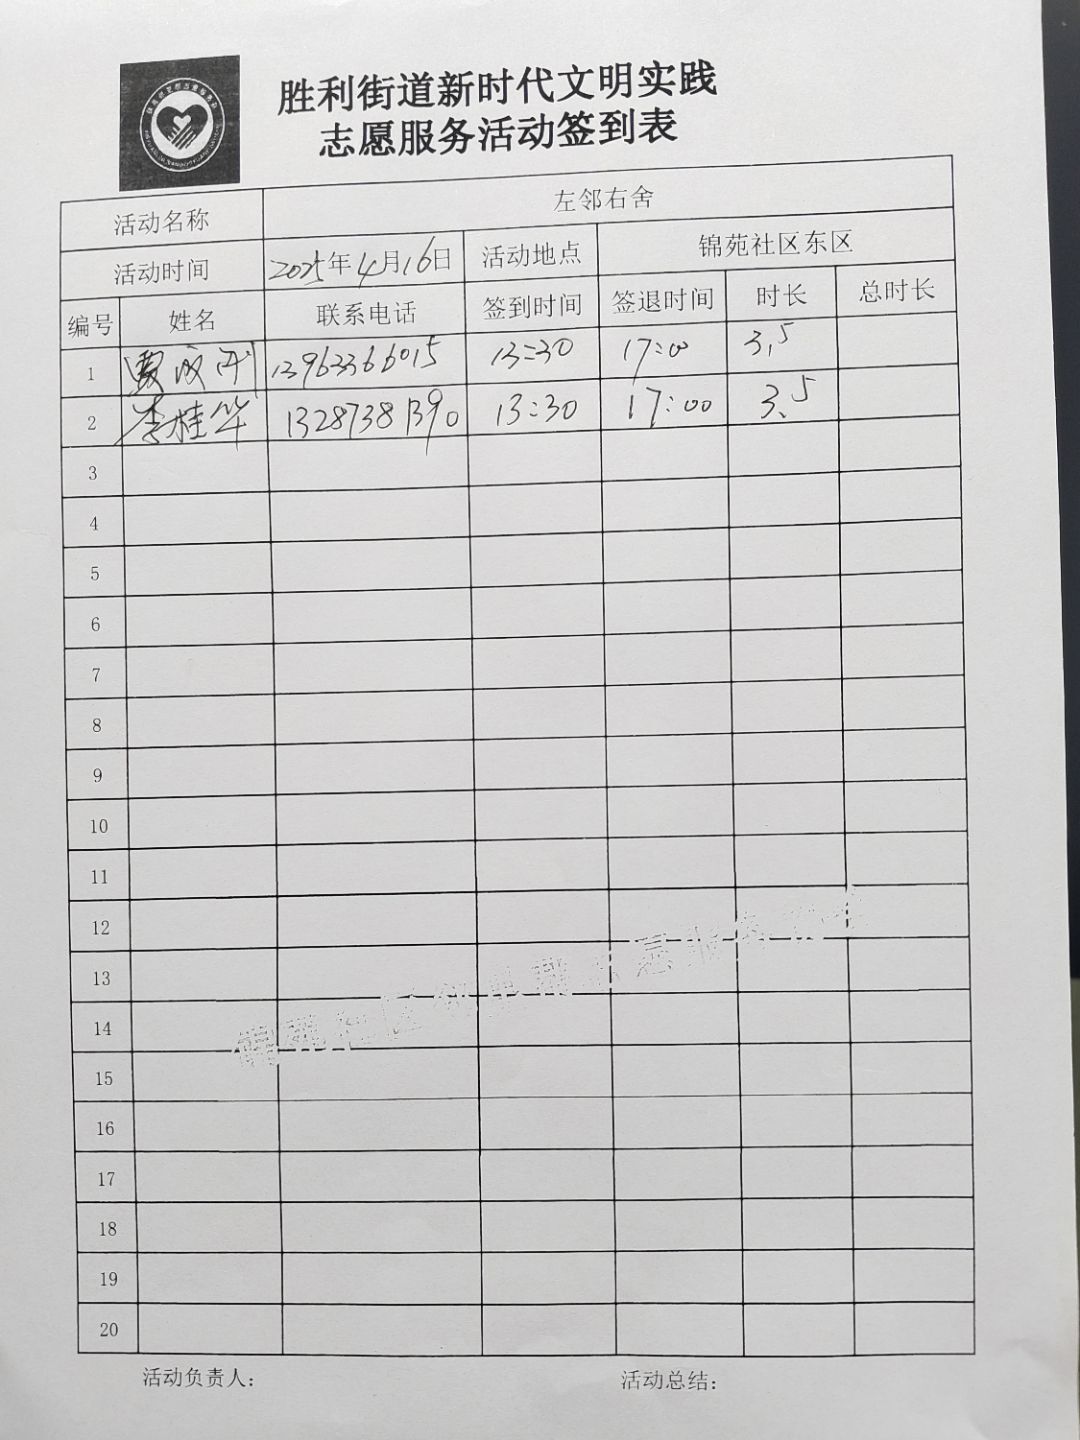 胜利街道新时代文明实践
志愿服务活动签到表
活动名称 左邻右舍
活动时间 2025年4月16日 活动地点 锦苑社区东区
编号 姓名 联系电话 签到时间 签退时间 时长 总时长
1 13963366015 13:30 17:00 3.5
2 李桂华 13287381390 13:30 17:00 3.5
3
4
5
6
7
8
9
10
11
12
13
14
15
16
17
18
19
20
活动负责人: 活动总结: